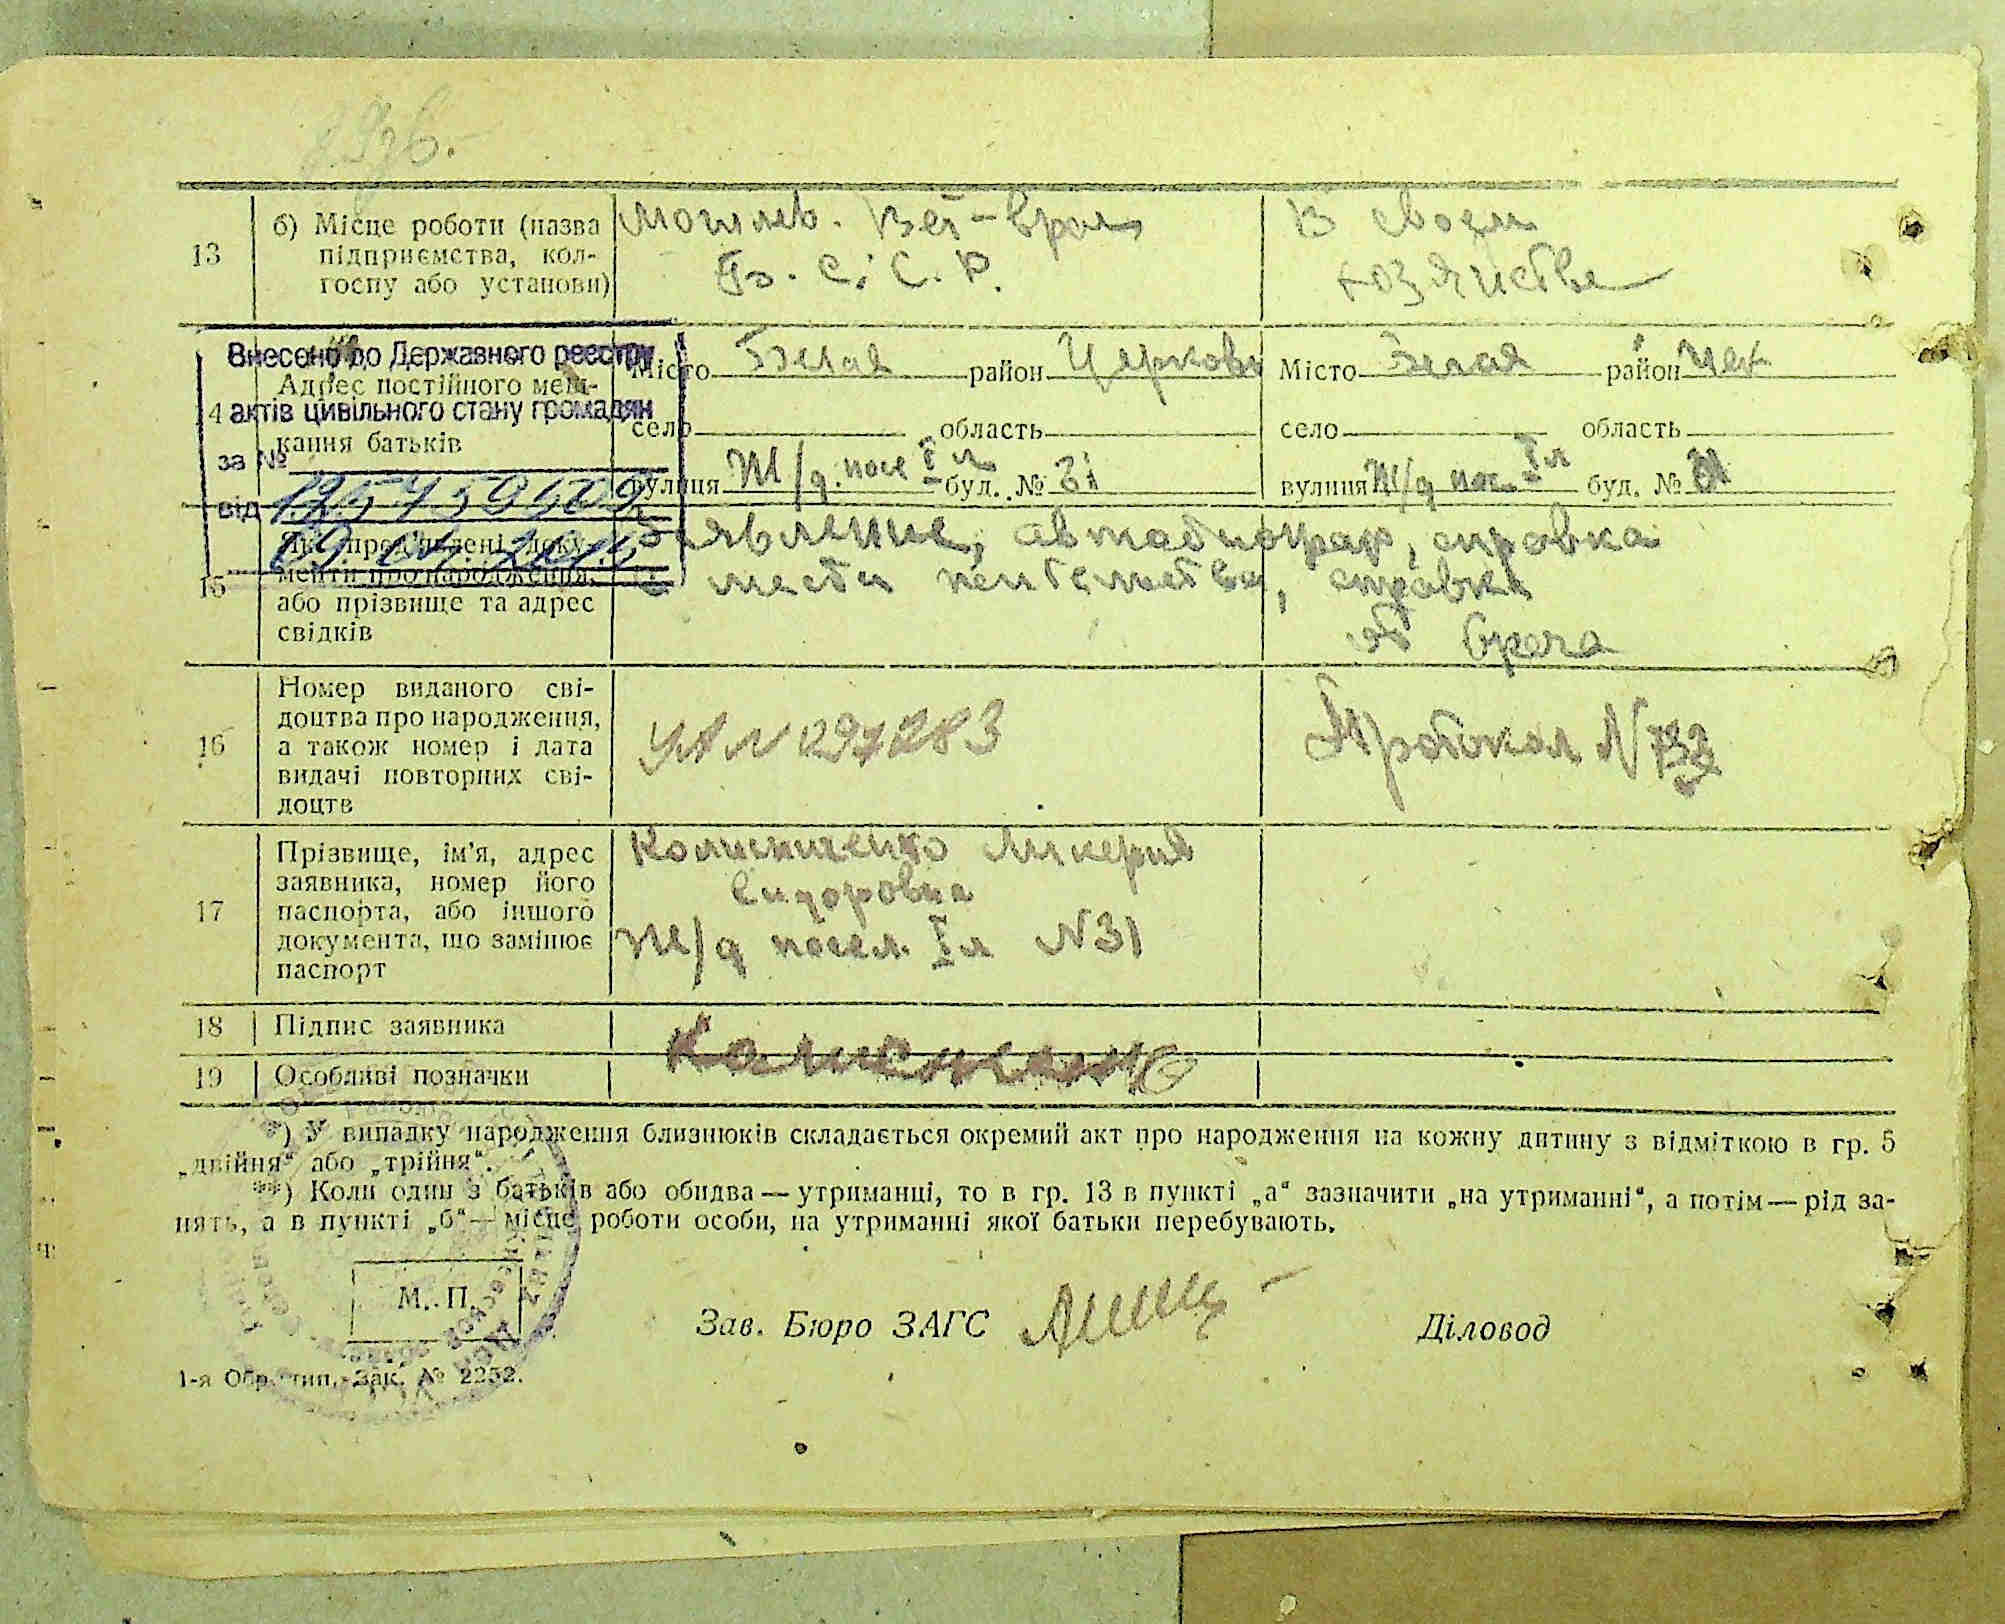 13
б) Місце роботи (назва
підприємства, кол-
госпу або установи)
Вет-врач
Б. С. С. Р.
В своем
хозяйстве
Внесено до Державного реєстру
актів цивільного стану громадян
за №
від
14
Адрес постійного меш-
кання батьків
Місто Белая район Церковь
село область
вулиця Ж/д. пос I л буд. № 31
Місто Белая район Цер
село область
вулиця Ж/д пос. I л буд. № 31
15
менти про народження,
або прізвище та адрес
свідків
Заявление, справка
с места жительства, справка
от врача
16
Номер виданого сві-
доцтва про народження,
а також номер і дата
видачі повторних сві-
доцтв
УА N 097283
Протокол N
17
Прізвище, ім’я, адрес
заявника, номер його
паспорта, або іншого
документа, що замінює
паспорт
Лукерия
Сидоровна
Ж/д посел. I л N 31
18
Підпис заявника
19
Особливі позначки
*) У випадку народження близнюків складається окремий акт про народження на кожну дитину з відміткою в гр. 5
„двійня“ або „трійня“.
**) Коли один з батьків або обидва — утриманці, то в гр. 13 в пункті „а“ зазначити „на утриманні“, а потім — рід за-
нять, а в пункті „б“ — місце роботи особи, на утриманні якої батьки перебувають.
М. П.
Зав. Бюро ЗАГС
Діловод
1-я Обр. тип. Зак. № 2252.